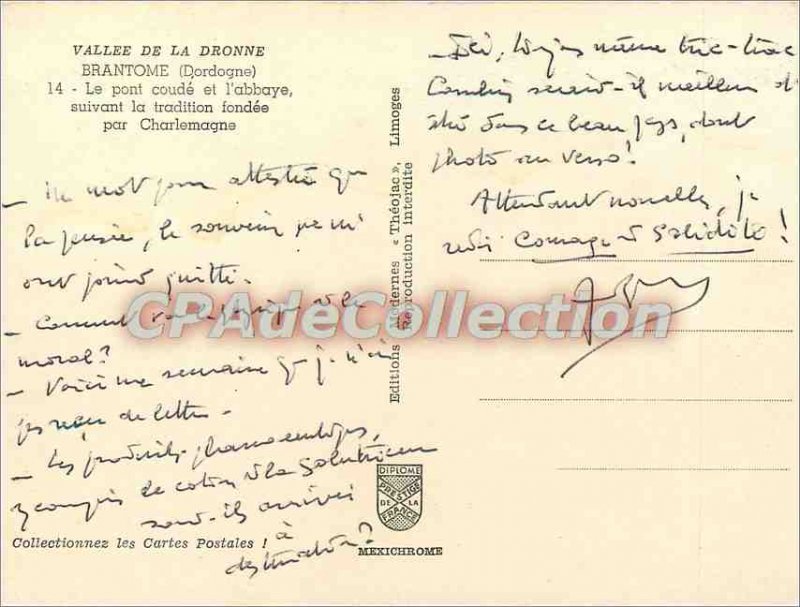 VALLEE DE LA DRONNE
BRANTOME (Dordogne)
14 - Le pont coudé et l'abbaye,
suivant la tradition fondée
par Charlemagne
- Un mot pour attester que
la pensée, le souvenir ne m'
ont point quitté.
- Comment va le physique et le
moral?
- Voici une semaine que je n'ai
pas reçu de lettre.
- Les produits pharmaceutiques,
y compris le coton et la
sont-ils arrivés
à
destination?
Collectionnez les Cartes Postales !
Editions Modernes « Théojac », Limoges
Reproduction interdite
DIPLOME
PRESTIGE
DE LA
FRANCE
MEXICHROME
- Ici, toujours même tric-trac
Combien serait-il meilleur d'
être dans ce beau pays, dont
photo au verso!
Attendant nouvelles, je
redis Courage et Solidité !
CPAdeCollection